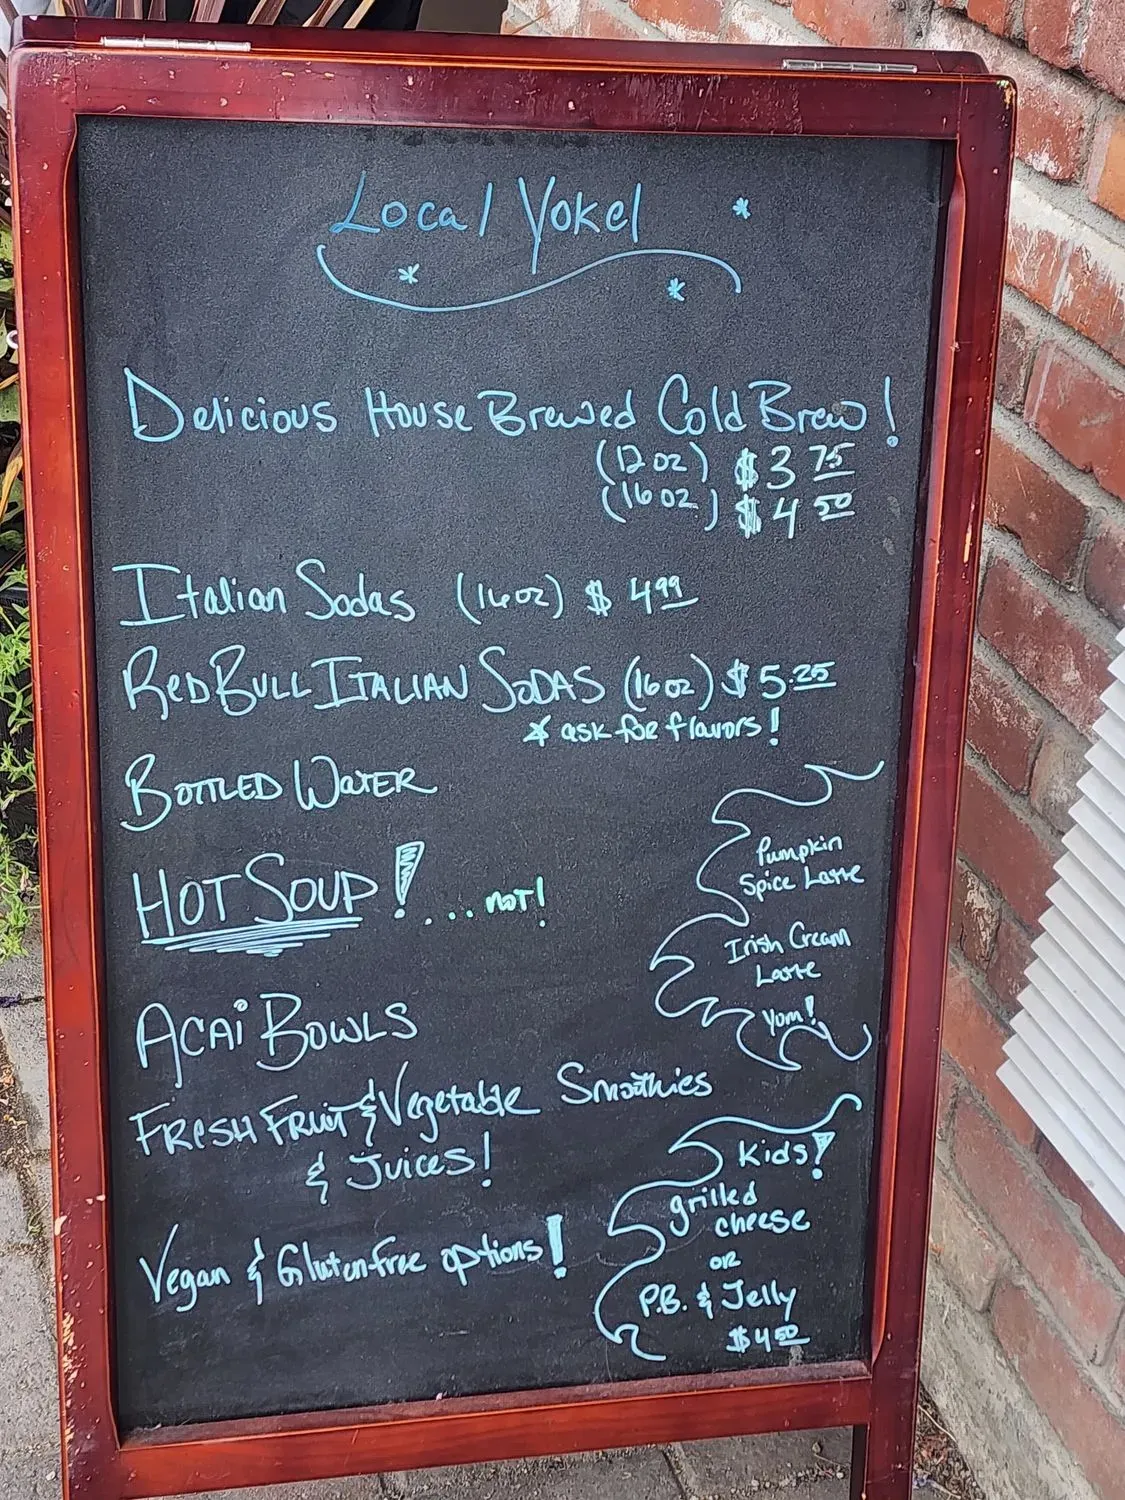 Local Yokel
Delicious House Brewed Cold Brew!
(12 oz) $3 75
(16 oz) $4 50
Italian Sodas (16 oz) $ 4 99
RED BULL ITALIAN SODAS (16 oz) $ 5.25
* ask for flavors!
BOTTLED WATER
HOT SOUP! ... not!
Pumpkin
Spice Latte
Irish Cream
Latte
Yum!
ACAI BOWLS
FRESH FRUIT & Vegetable Smoothies
& Juices!
Kids!
grilled
cheese
OR
P.B. & Jelly
$4 50
Vegan & Gluten free options!